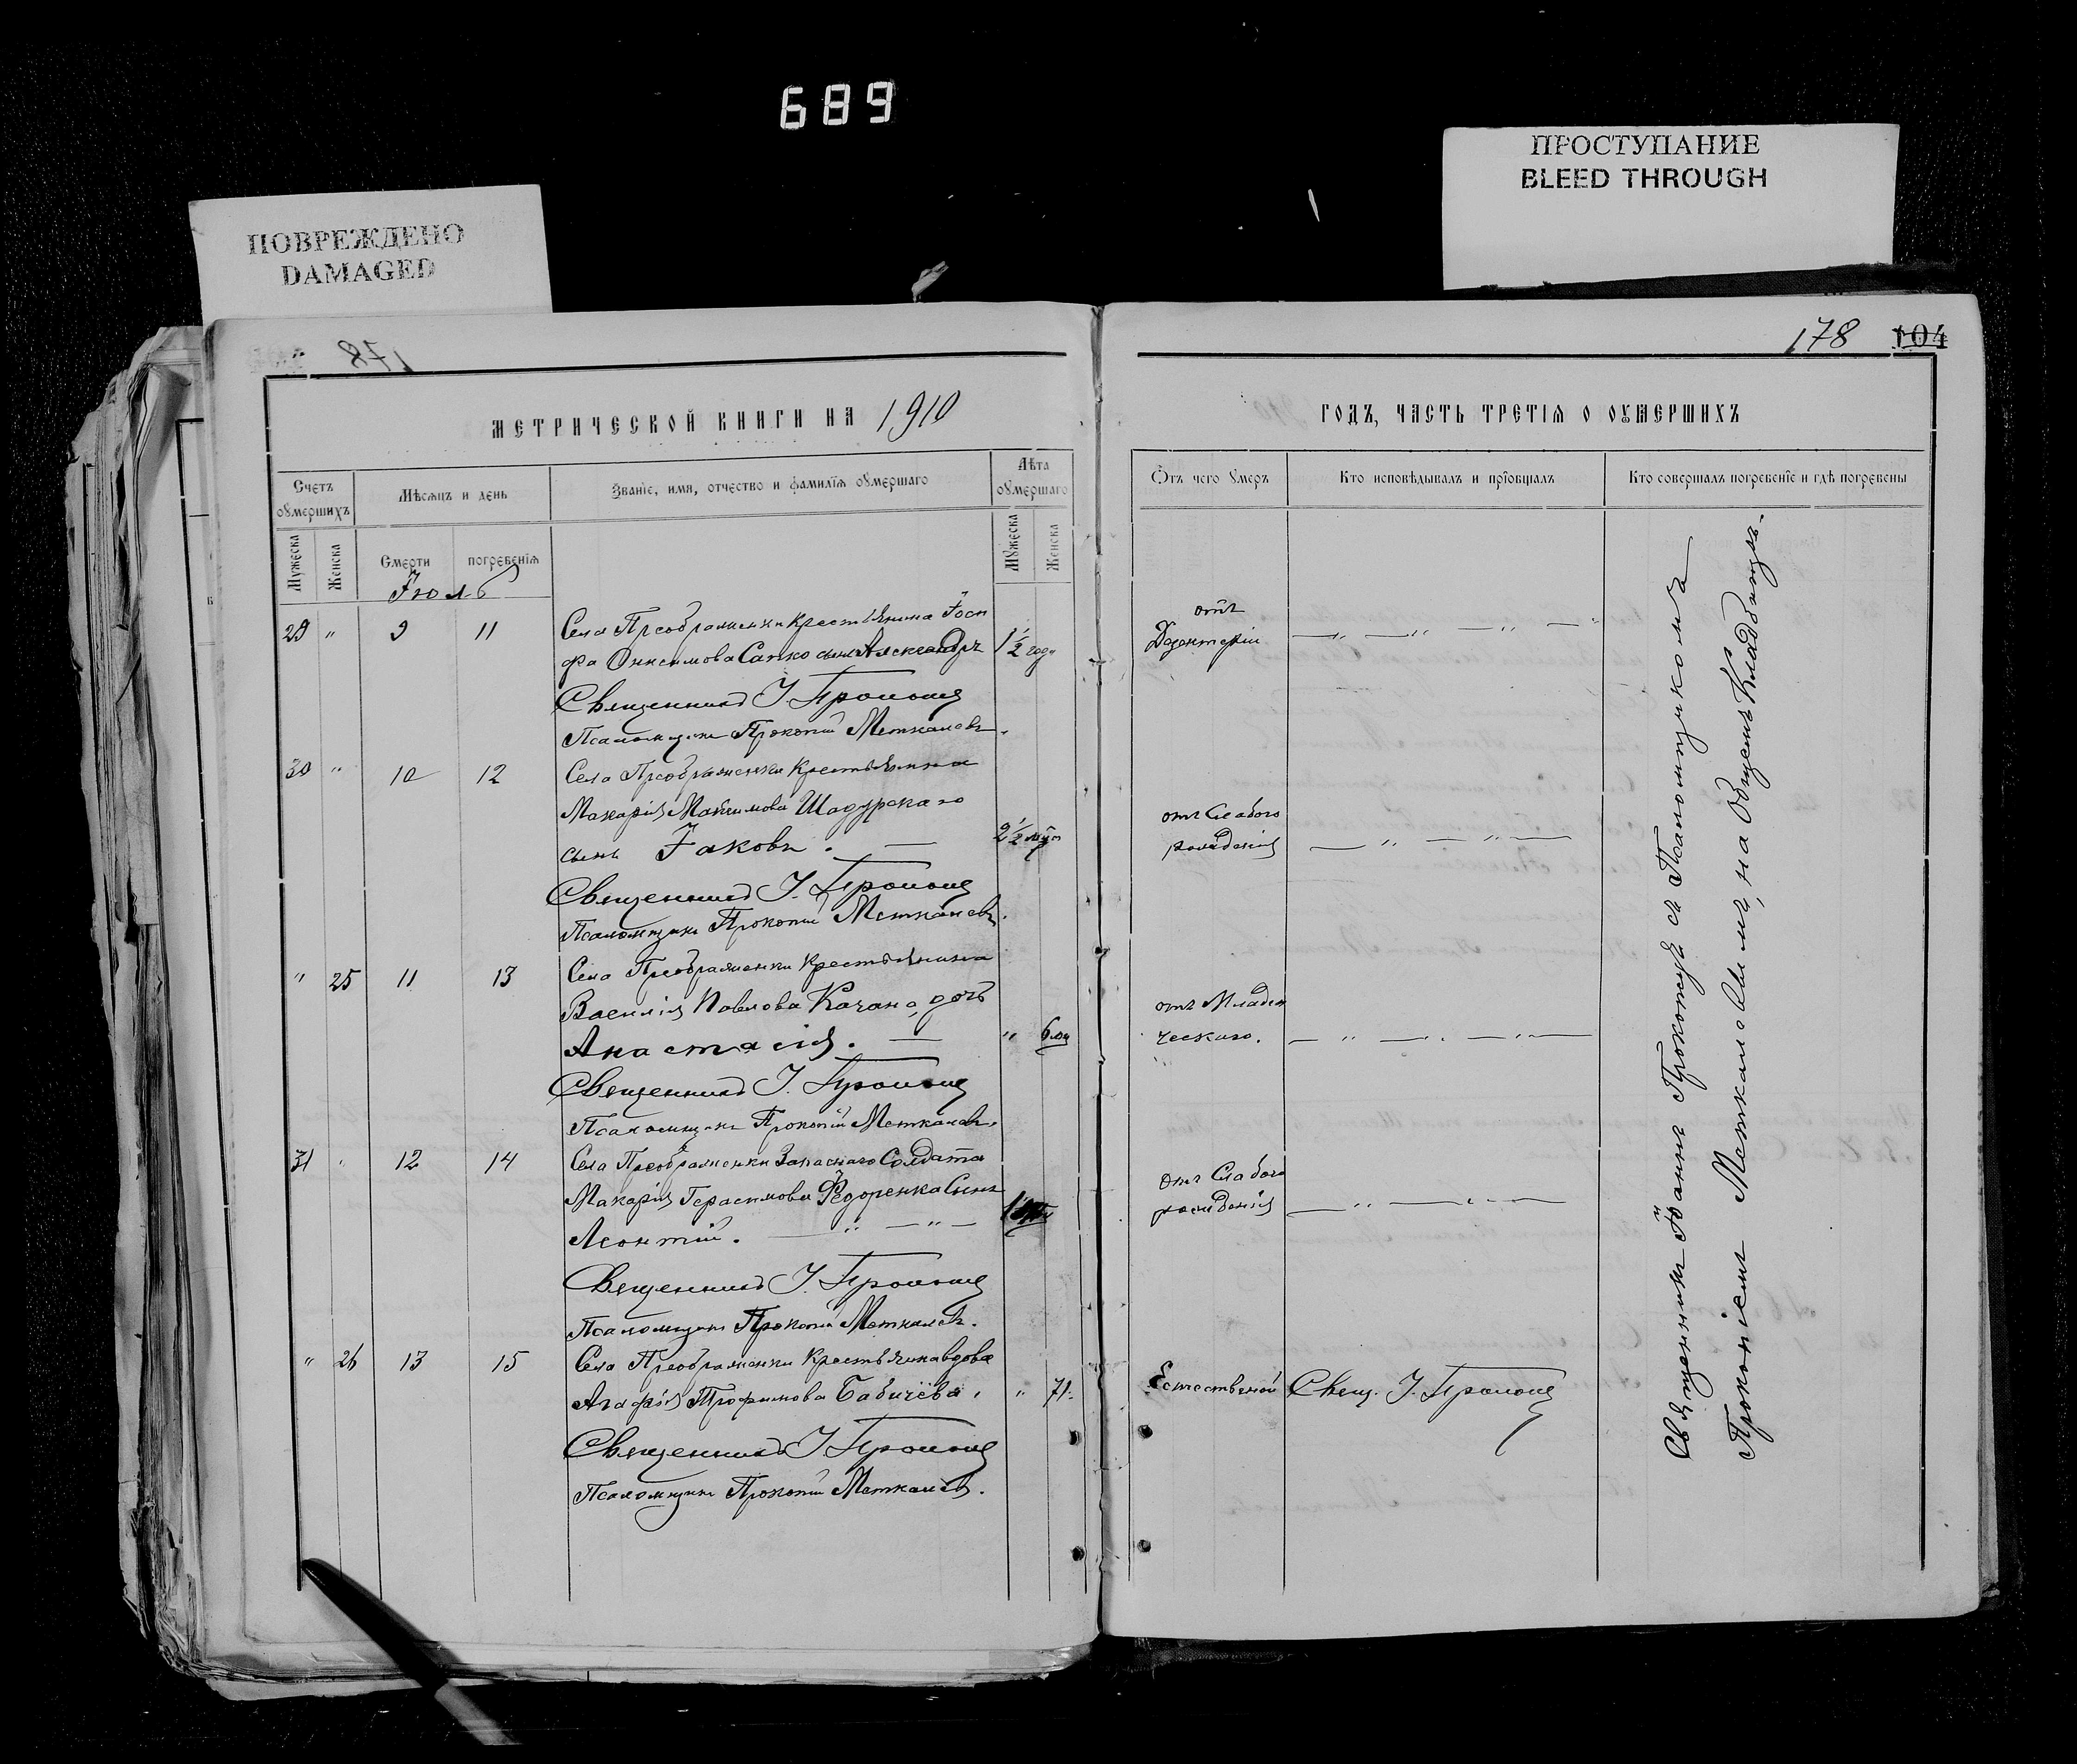 689
ПРОСТУПАНИЕ
BLEED THROUGH
ПОВРЕЖДЕНО
DAMAGED
178 104
МЕТРИЧЕСКОЙ КНИГИ НА 1910
ГОДЪ, ЧАСТЬ ТРЕТІЯ О ОУМЕРШИХЪ
Счетъ оумершихъ
Мѣсяцъ и день
Званіе, имя, отчество и фамилія оумершаго
Лѣта оумершаго
Отъ чего умеръ
Кто исповѣдывалъ и пріобщалъ
Кто совершалъ погребеніе и гдѣ погребены
Мужеска
Женска
Смерти
погребенія
Мужеска
Женска
Іюль
29 " 9 11 Села Преображенки крестьянина Іоси
фа Онисимова Сапко сынъ Александръ 1 1/2 года
отъ
Дезентеріи
Священникъ І. Прокопец
Псаломщикъ Прокопій Меткалевъ.
30 " 10 12 Села Преображенки крестьянина
Макарія Максимова Шадурскаго
сынъ Іаковъ. 2 1/2
отъ Слабого
рожденія
Священникъ І. Прокопец
Псаломщикъ Прокопій Меткалевъ.
" 25 11 13 Села Преображенки крестьянина
Василія Павлова Качана, дочь
Анастасія. " 6
отъ Младен
ческаго.
Священникъ І. Прокопец
Псаломщикъ Прокопій Меткалевъ.
31 " 12 14 Села Преображенки Запаснаго Солдата
Макарія Герасимова Ѳедоренка Сынъ
Леонтій.
отъ Слабого
рожденія
Священникъ І. Прокопец
Псаломщикъ Прокопій Меткалевъ.
" 26 13 15 Села Преображенки крестьянка вдова
Агафія Трофимова Бабичева. " 71.
Естественной
Свящ. І. Прокопец
Священникъ І. Прокопец
Псаломщикъ Прокопій Меткалевъ.
Священникъ Іоаннъ Прокопецъ съ Псаломщикомъ
Прокопіемъ Меткалевымъ, на Общемъ Кладбищѣ.